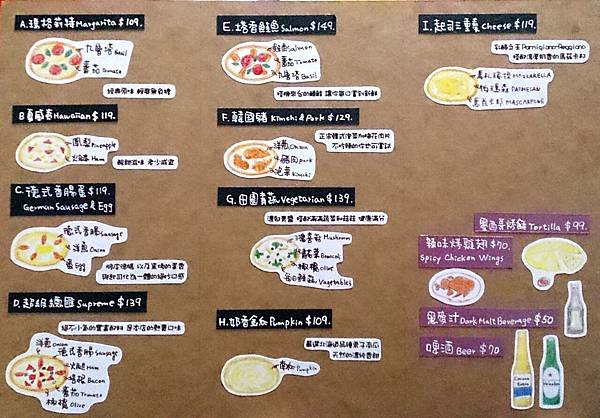 A.瑪格莉特 Margarita $109.
九層塔 Basil
番茄 Tomato
經典原味 輕爽無負擔
B.夏威夷 Hawaiian $119.
鳳梨 Pineapple
火腿 Ham
酸甜滋味 老少咸宜
C.德式香腸蛋 $119.
German Sausage & Egg
德式香腸 Sausage
洋蔥 Onion
蛋 Egg
D.超級總匯 Supreme $139
洋蔥 Onion
德式香腸 Sausage
火腿 Ham
培根 Bacon
番茄 Tomato
橄欖 Olive
E.塔香鮭魚 Salmon $149.
鮭魚 Salmon
番茄 Tomato
九層塔 Basil
F.韓國豬 Kimchi & Pork $129.
正宗韓式泡菜加梅花肉片
不吃辣的你也可嘗試
洋蔥 Onion
豬肉 pork
泡菜 Kimchi
G.田園青蔬 Vegetarian $139.
濃郁青醬 搭配滿滿蔬菜和菇菇 健康滿分
Mushroom
Broccoli
橄欖 olive
Vegetables
H.奶香金瓜 Pumpkin $109.
嚴選北海道品種栗子南瓜
天然的濃純香甜
南瓜 Pumpkin
I.起司三重奏 Cheese $119.
乳酪之王 Parmigiano-Reggiano
MOZZARELLA
帕瑪森 PARMESAN
MASCARPONE
墨西哥烙餅 Tortilla $99.
辣味烤雞翅 $70.
Spicy Chicken Wings
黑麥汁 Dark Malt Beverage $50
啤酒 Beer $70
Corona
Extra
Heineken